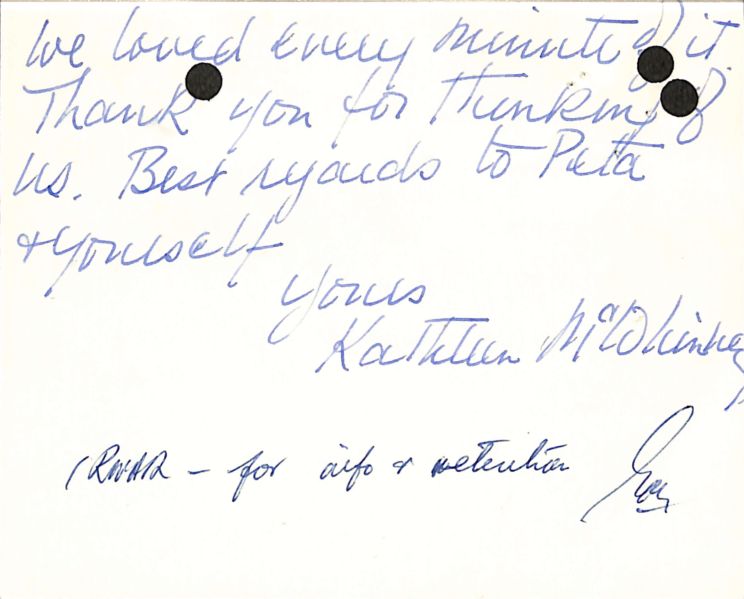 We loved every minute of it.
Thank you for thinking of
us. Best regards to Peta
+ yourself
yours
Kathleen McWhinney
– for info & retention